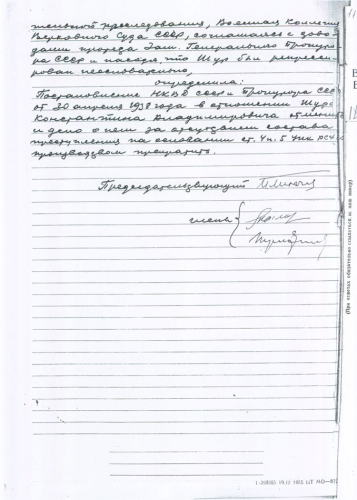 тельной преследования, Военная Коллегия
Верховного Суда СССР, соглашаясь с дово-
дами протеста Зам. Генерального Прокуро-
ра СССР и находя, что Шур был репресси-
рован необоснованно,
определила:
Постановление НКВД СССР и Прокурора СССР
от 20 апреля 1938 года в отношении Шура
Константина Владимировича отменить
и дело о нем за отсутствием состава
преступления на основании ст. 4 п. 5 УПК РСФСР
производством прекратить.
Председательствующий
члены
(При ответах обязательно ссылаться на наш номер)